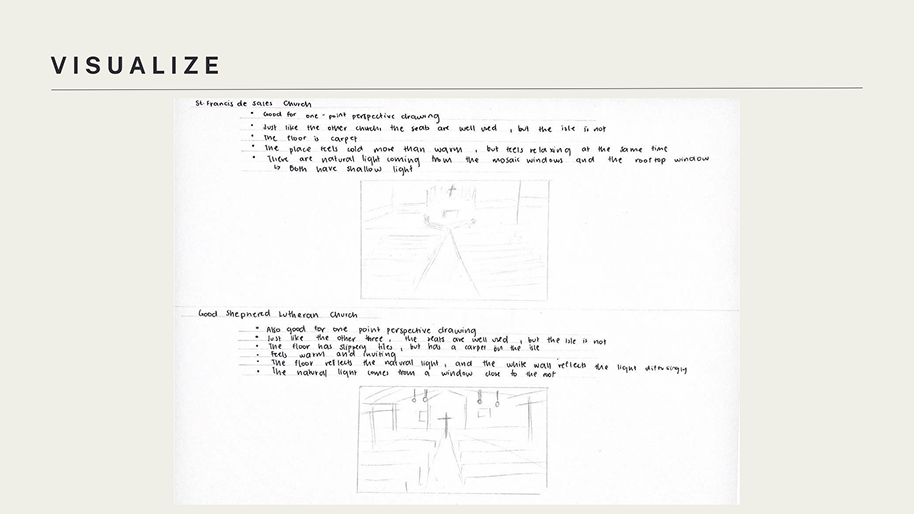 VISUALIZE
St. Francis de Sales Church
• Good for one-point perspective drawing
• Just like the other church, the seats are well used, but the isle is not
• The floor is carpet
• The place feels cold more than warm, but feels relaxing at the same time
• There are natural light coming from the mosaic windows and the rooftop window
↳ Both have shallow light
Good Shephered Lutheran Church
• Also good for one point perspective drawing
• Just like the other three, the seats are well used, but the isle is not
• The floor has slippery tiles, but has a carpet on the isle
• Feels warm and inviting
• The floor reflects the natural light, and the white wall reflects the light
• The natural light comes from a window close to the